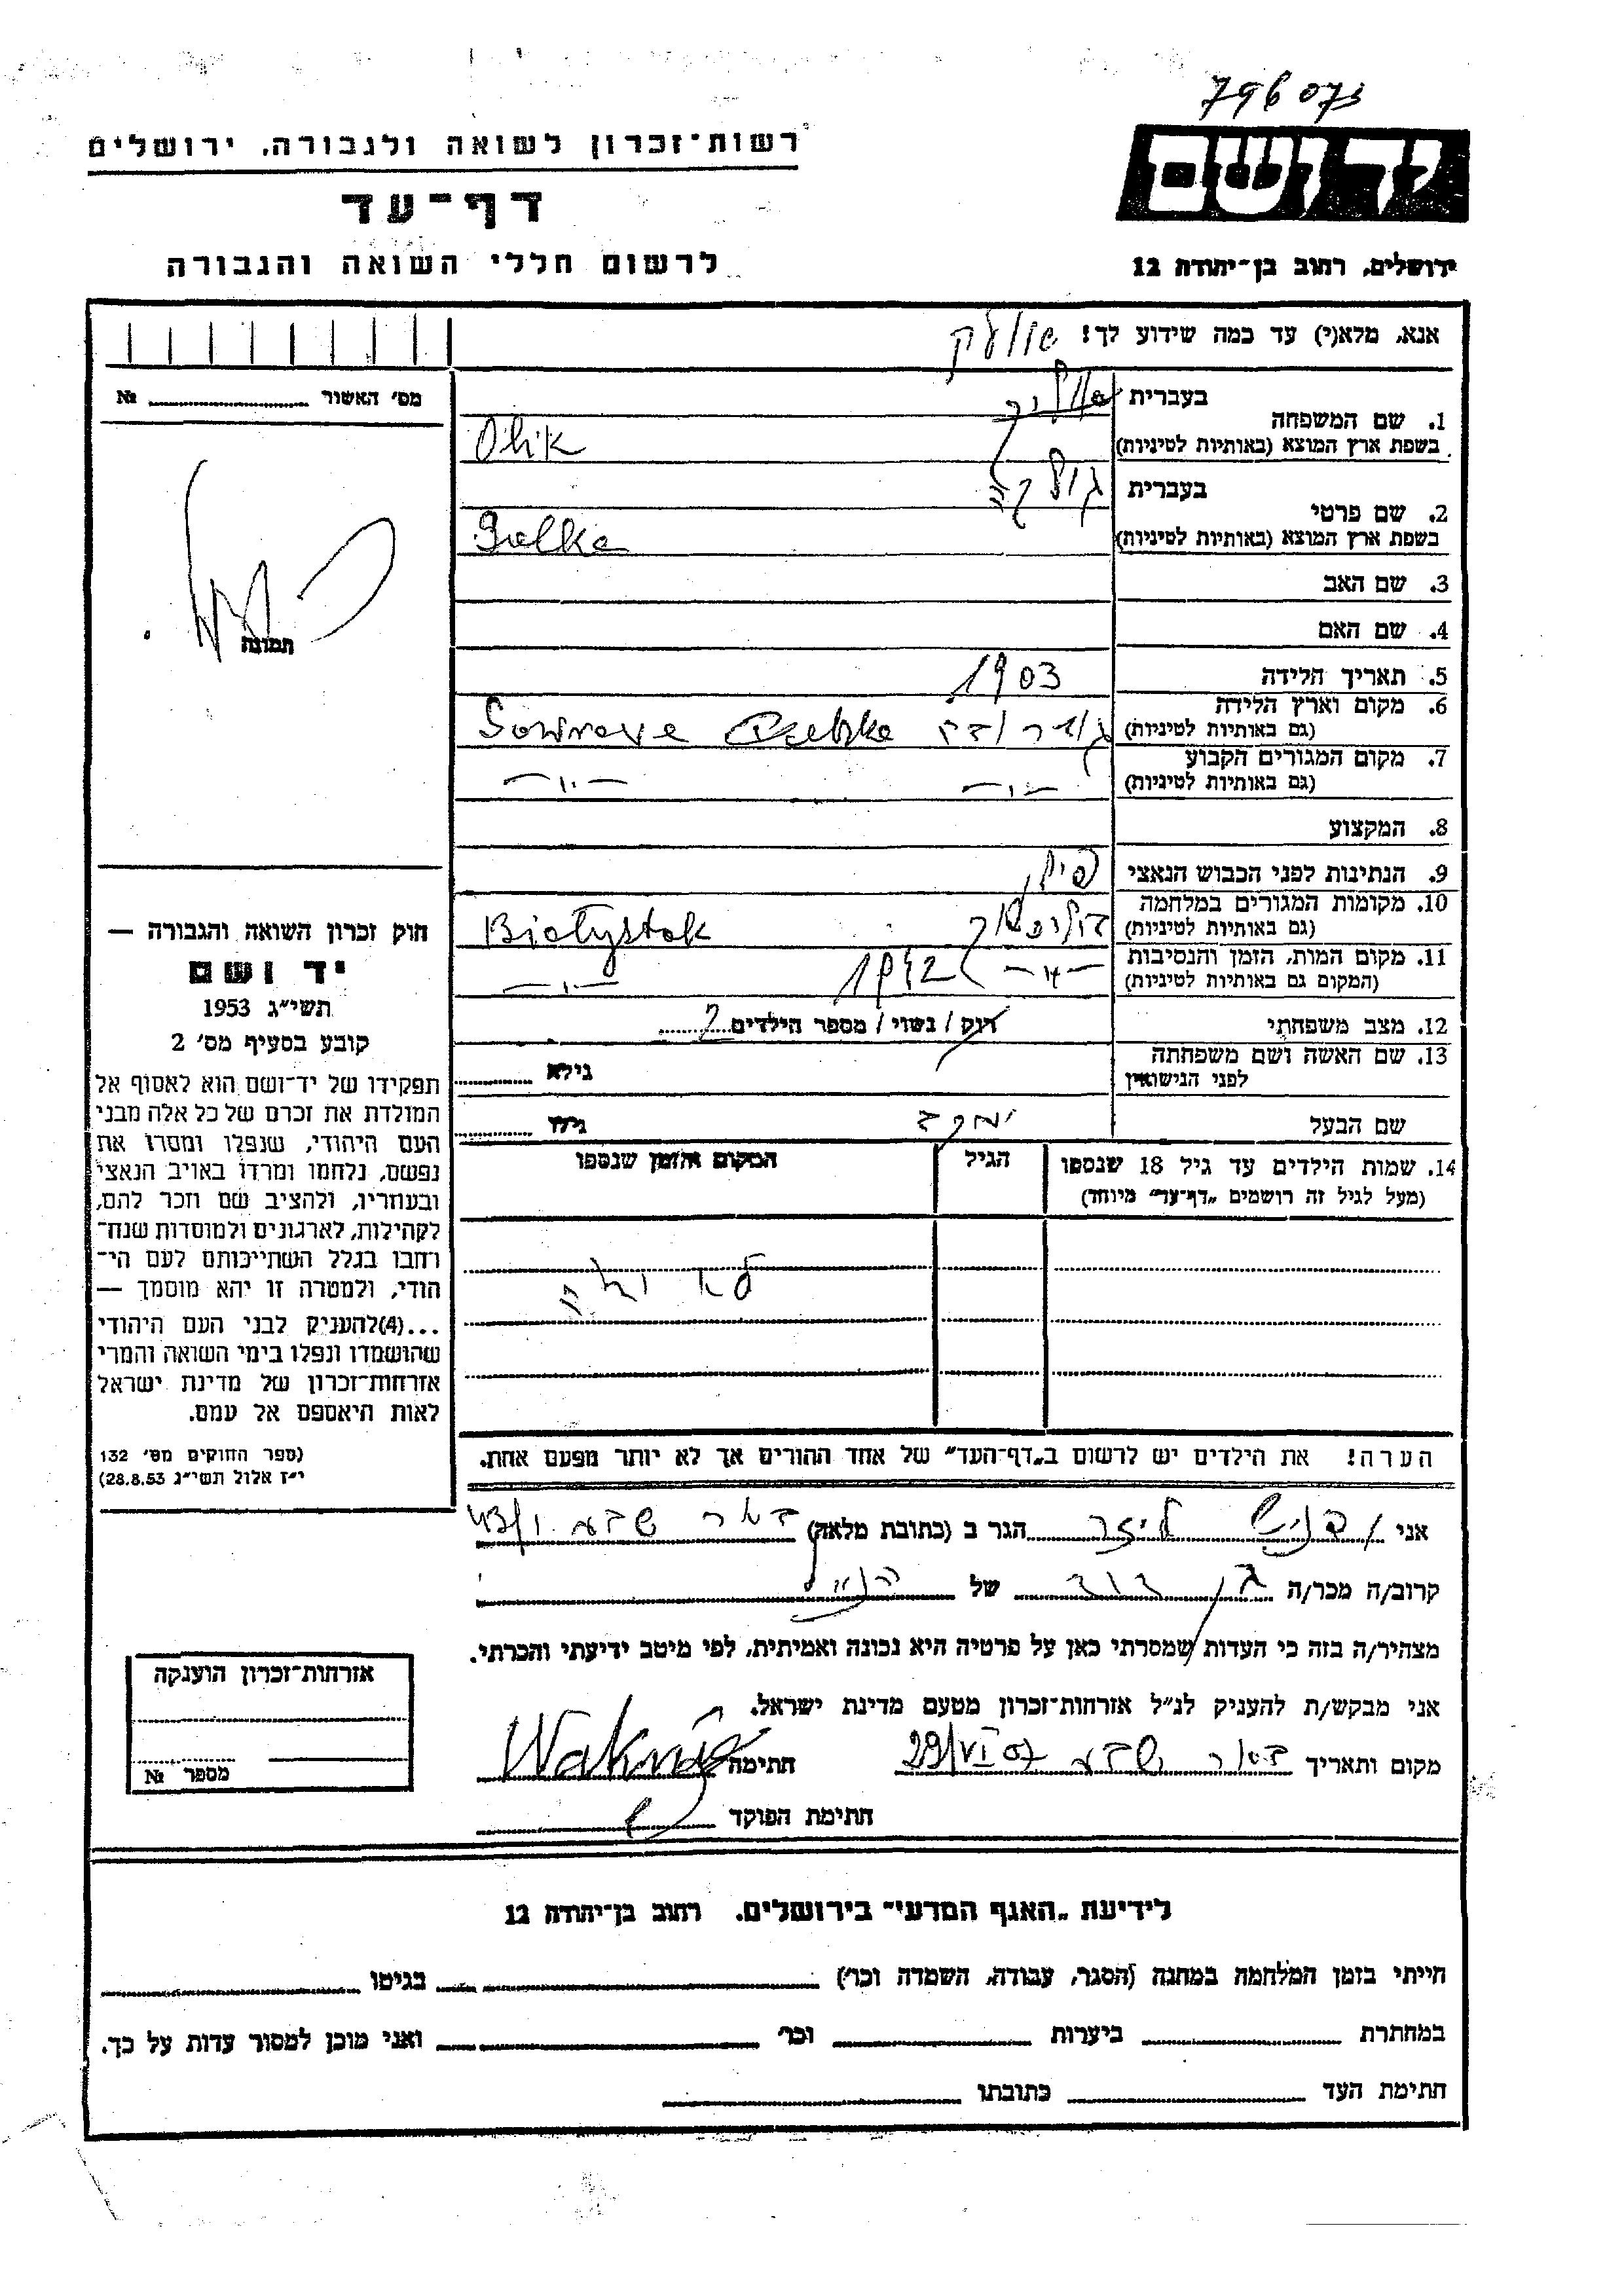 796073
רשות־זכרון לשואה ולגבורה, ירושלים
יד ושם
דף־עד
לרשום חללי השואה והגבורה
ירושלים, רחוב בן־יהודה 12
אנא, מלא(י) עד כמה שידוע לך!
מס׳ האשור №
בעברית
1. שם המשפחה
בשפת ארץ המוצא (באותיות לטיניות) Olik
בעברית
2. שם פרטי
בשפת ארץ המוצא (באותיות לטיניות)
תמונה
3. שם האב
4. שם האם
5. תאריך הלידה 1903
6. מקום וארץ הלידה
(גם באותיות לטיניות)
7. מקום המגורים הקבוע
(גם באותיות לטיניות) — ״ — — ״ —
8. המקצוע
9. הנתינות לפני הכבוש הנאצי פולין
10. מקומות המגורים במלחמה
(גם באותיות לטיניות) Białystok
11. מקום המות, הזמן והנסיבות
(המקום גם באותיות לטיניות) — ״ — 1942 — ״ —
12. מצב משפחתי רווק / נשוי / מספר הילדים 2
13. שם האשה ושם משפחתה
לפני הנישואין גילא
שם הבעל יעקב גילו
14. שמות הילדים עד גיל 18 שנספו הגיל המקום והזמן שנספו
(מעל לגיל זה רושמים „דף־עד״ מיוחד)
הערה! את הילדים יש לרשום ב„דף־העד״ של אחד ההורים אך לא יותר מפעם אחת.
חוק זכרון השואה והגבורה —
יד ושם
תשי״ג 1953
קובע בסעיף מס׳ 2
תפקידו של יד־ושם הוא לאסוף אל
המולדת את זכרם של כל אלה מבני
העם היהודי, שנפלו ומסרו את
נפשם, נלחמו ומרדו באויב הנאצי
ובעוזריו, ולהציב שם וזכר להם,
לקהילות, לארגונים ולמוסדות שנח־
רחבו בגלל השתייכותם לעם הי־
הודי, ולמטרה זו יהא מוסמך —
...(4)להעניק לבני העם היהודי
שהושמדו ונפלו בימי השואה והמרי
אזרחות־זכרון של מדינת ישראל
לאות היאספם אל עמם.
(ספר החוקים מס׳ 132
י״ז אלול תשי״ג 28.8.53)
אני הגר ב (כתובת מלאה) באר שבע
קרוב/ה מכר/ה בן דוד של הנ״ל
מצהיר/ה בזה כי העדות שמסרתי כאן על פרטיה היא נכונה ואמיתית, לפי מיטב ידיעתי והכרתי.
אני מבקש/ת להעניק לנ״ל אזרחות־זכרון מטעם מדינת ישראל.
מקום ותאריך באר שבע 29/VI 57 חתימה
חתימת הפוקד
אזרחות־זכרון הוענקה
מספר №
לידיעת „האגף המדעי״ בירושלים. רחוב בן־יהודה 12
הייתי בזמן המלחמה במחנה (הסגר, עבודה, השמדה וכר׳) בגיטו
במחתרת ביערות וכר׳ ואני מוכן למסור עדות על כך.
חתימת העד כתובתו